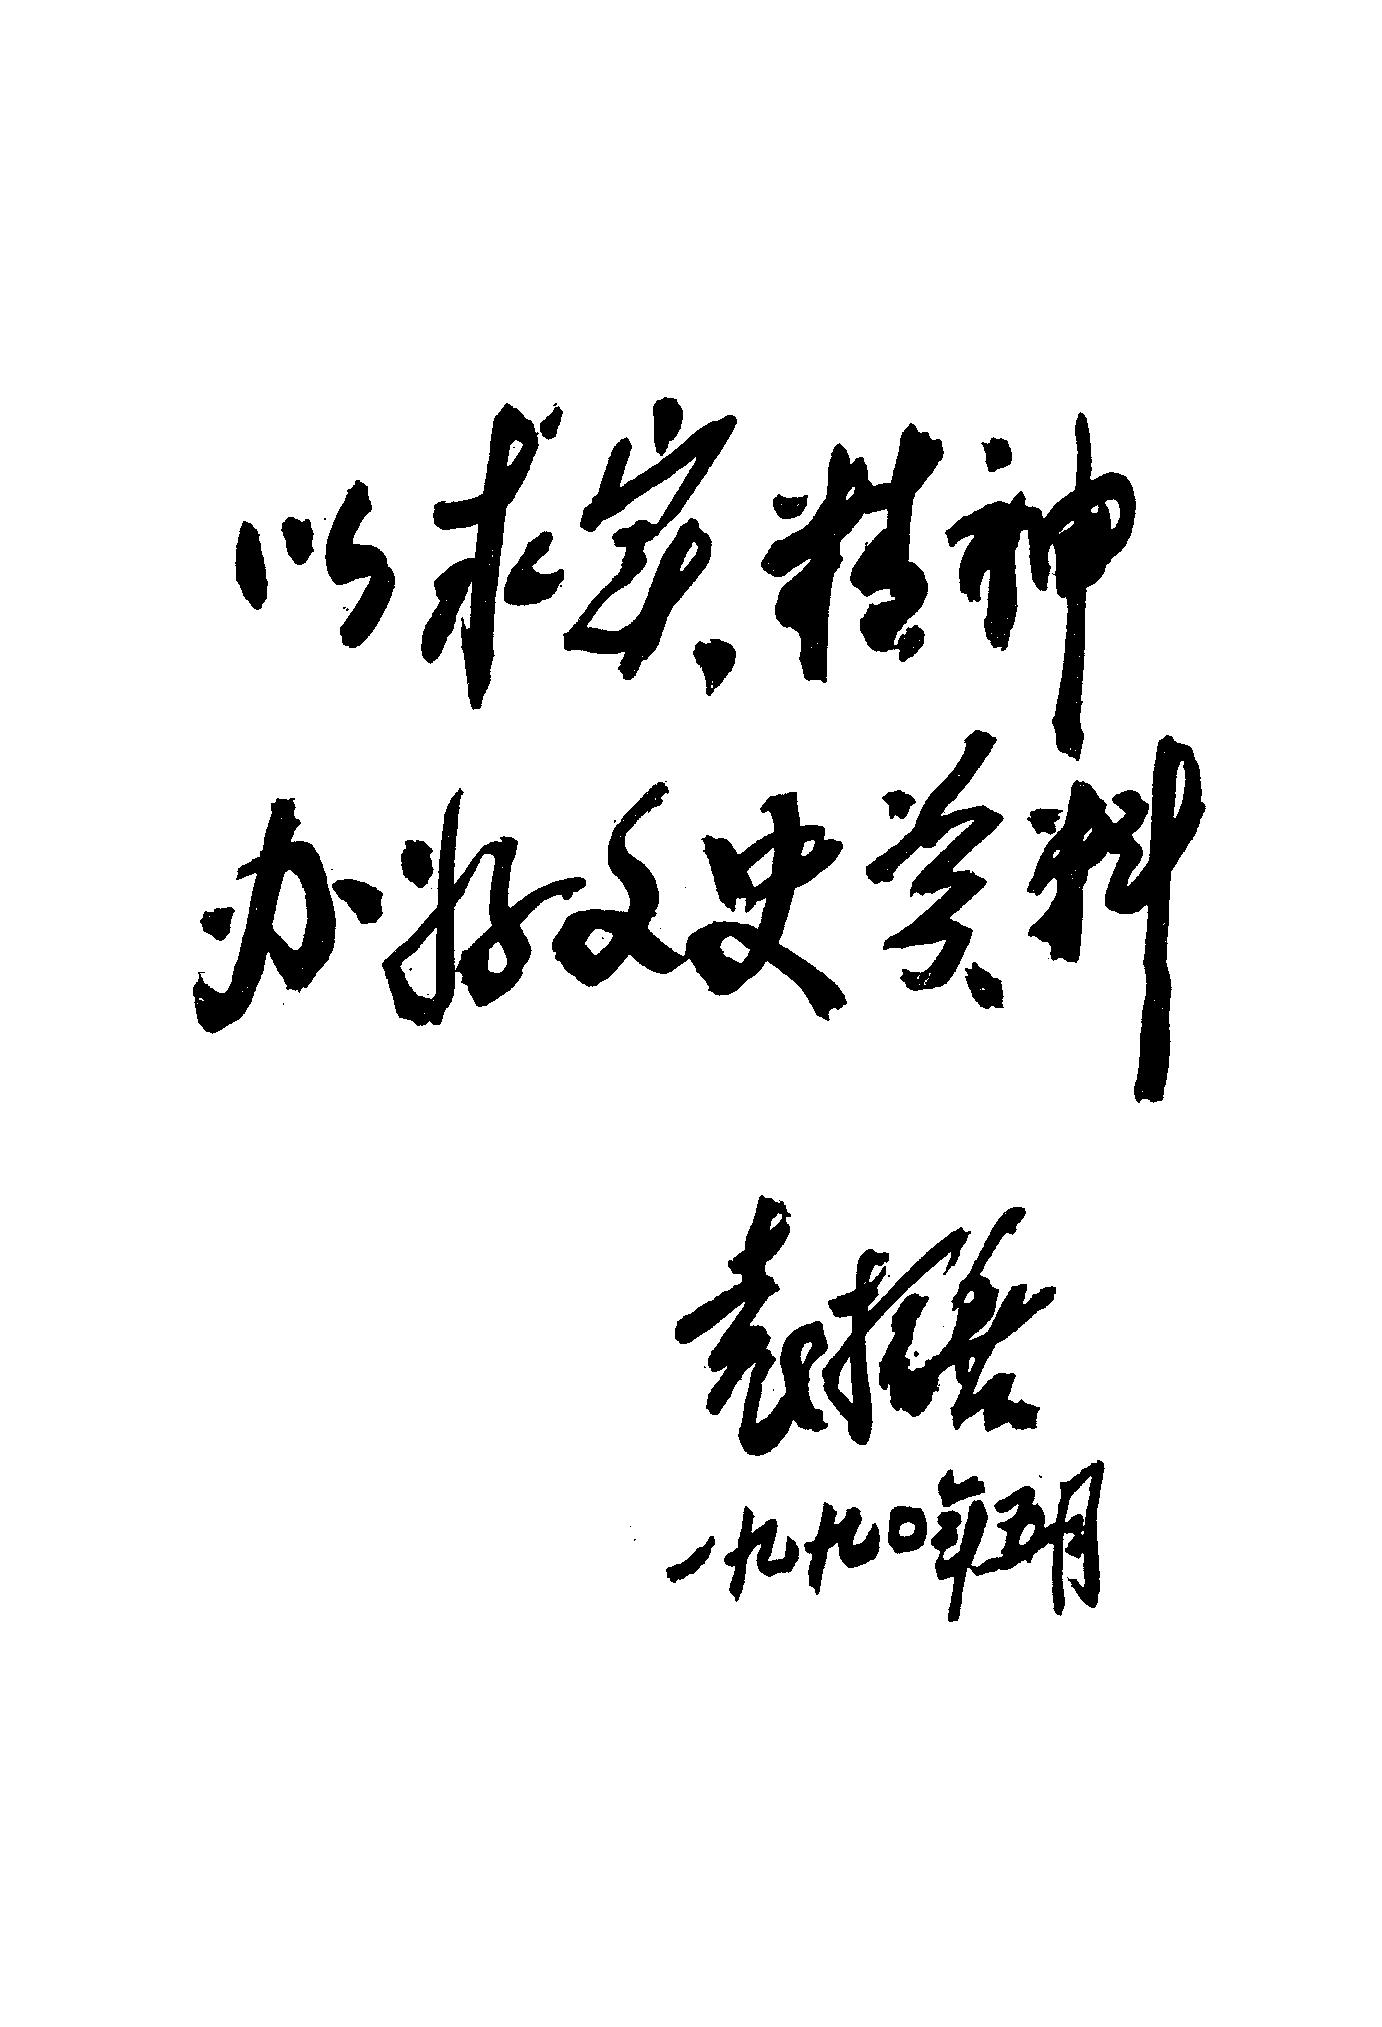 以求实精神
办好文史资料
袁振
一九九〇年五月